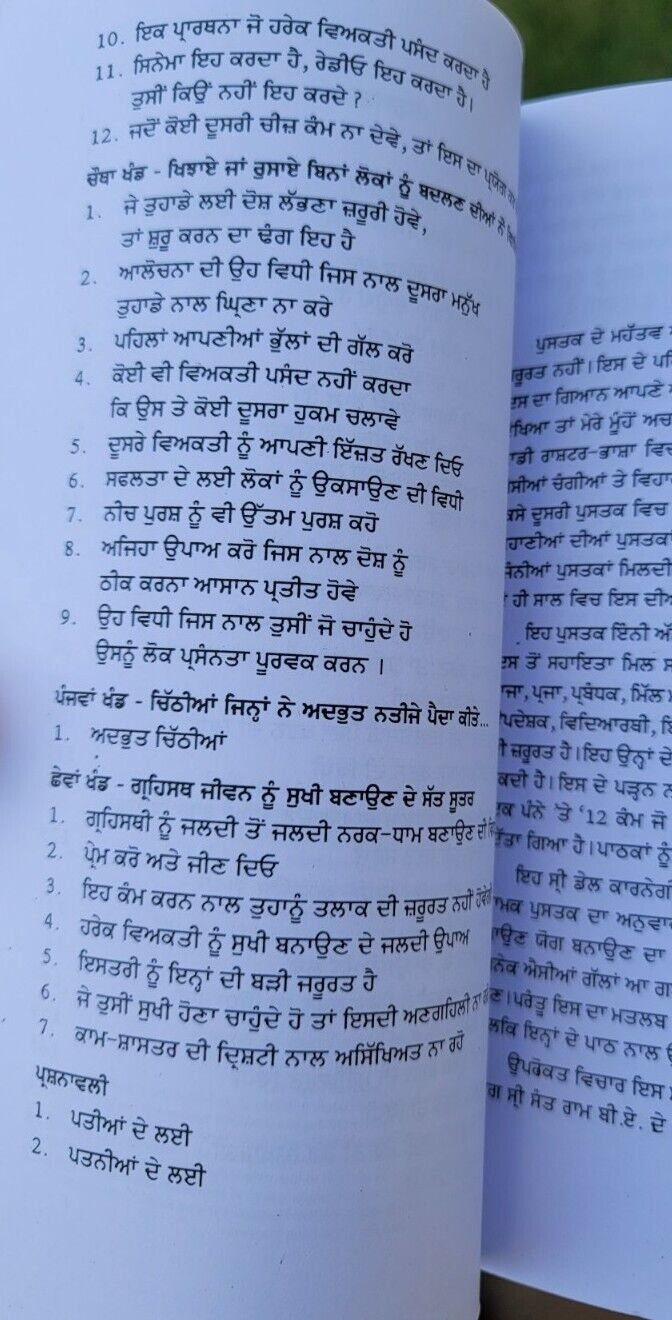 10. ਇਕ ਪ੍ਰਾਰਥਨਾ ਜੋ ਹਰੇਕ ਵਿਅਕਤੀ ਪਸੰਦ ਕਰਦਾ ਹੈ
11. ਸਿਨੇਮਾ ਇਹ ਕਰਦਾ ਹੈ, ਰੇਡੀਓ ਇਹ ਕਰਦਾ ਹੈ।
ਤੁਸੀਂ ਕਿਉਂ ਨਹੀਂ ਇਹ ਕਰਦੇ ?
12. ਜਦੋਂ ਕੋਈ ਦੂਸਰੀ ਚੀਜ਼ ਕੰਮ ਨਾ ਦੇਵੇ, ਤਾਂ ਇਸ ਦਾ ਪ੍ਰਯੋਗ
ਚੌਥਾ ਖੰਡ - ਖਿਝਾਏ ਜਾਂ ਰੁਸਾਏ ਬਿਨਾਂ ਲੋਕਾਂ ਨੂੰ ਬਦਲਣ ਦੀਆਂ ਨੌਂ
1. ਜੇ ਤੁਹਾਡੇ ਲਈ ਦੋਸ਼ ਲੱਭਣਾ ਜ਼ਰੂਰੀ ਹੋਵੇ,
ਤਾਂ ਸ਼ੁਰੂ ਕਰਨ ਦਾ ਢੰਗ ਇਹ ਹੈ
2. ਆਲੋਚਨਾ ਦੀ ਉਹ ਵਿਧੀ ਜਿਸ ਨਾਲ ਦੂਸਰਾ ਮਨੁੱਖ
ਤੁਹਾਡੇ ਨਾਲ ਘ੍ਰਿਣਾ ਨਾ ਕਰੇ
3. ਪਹਿਲਾਂ ਆਪਣੀਆਂ ਭੁੱਲਾਂ ਦੀ ਗੱਲ ਕਰੋ
4. ਕੋਈ ਵੀ ਵਿਅਕਤੀ ਪਸੰਦ ਨਹੀਂ ਕਰਦਾ
ਕਿ ਉਸ ਤੇ ਕੋਈ ਦੂਸਰਾ ਹੁਕਮ ਚਲਾਵੇ
5. ਦੂਸਰੇ ਵਿਅਕਤੀ ਨੂੰ ਆਪਣੀ ਇੱਜ਼ਤ ਰੱਖਣ ਦਿਓ
6. ਸਫਲਤਾ ਦੇ ਲਈ ਲੋਕਾਂ ਨੂੰ ਉਕਸਾਉਣ ਦੀ ਵਿਧੀ
7. ਨੀਚ ਪੁਰਸ਼ ਨੂੰ ਵੀ ਉੱਤਮ ਪੁਰਸ਼ ਕਹੋ
8. ਅਜਿਹਾ ਉਪਾਅ ਕਰੋ ਜਿਸ ਨਾਲ ਦੋਸ਼ ਨੂੰ
ਠੀਕ ਕਰਨਾ ਆਸਾਨ ਪ੍ਰਤੀਤ ਹੋਵੇ
9. ਉਹ ਵਿਧੀ ਜਿਸ ਨਾਲ ਤੁਸੀਂ ਜੋ ਚਾਹੁੰਦੇ ਹੋ
ਉਸਨੂੰ ਲੋਕ ਪ੍ਰਸੰਨਤਾ ਪੂਰਵਕ ਕਰਨ ।
ਪੰਜਵਾਂ ਖੰਡ - ਚਿੱਠੀਆਂ ਜਿਨ੍ਹਾਂ ਨੇ ਅਦਭੁਤ ਨਤੀਜੇ ਪੈਦਾ ਕੀਤੇ...
1. ਅਦਭੁਤ ਚਿੱਠੀਆਂ
ਛੇਵਾਂ ਖੰਡ - ਗ੍ਰਹਿਸਥ ਜੀਵਨ ਨੂੰ ਸੁਖੀ ਬਣਾਉਣ ਦੇ ਸੱਤ ਸੂਤਰ
1. ਗ੍ਰਹਿਸਥੀ ਨੂੰ ਜਲਦੀ ਤੋਂ ਜਲਦੀ ਨਰਕ-ਧਾਮ ਬਣਾਉਣ ਦੀ
2. ਪ੍ਰੇਮ ਕਰੋ ਅਤੇ ਜੀਣ ਦਿਓ
3. ਇਹ ਕੰਮ ਕਰਨ ਨਾਲ ਤੁਹਾਨੂੰ ਤਲਾਕ ਦੀ ਜ਼ਰੂਰਤ ਨਹੀਂ ਹੋਵੇਗੀ
4. ਹਰੇਕ ਵਿਅਕਤੀ ਨੂੰ ਸੁਖੀ ਬਨਾਉਣ ਦੇ ਜਲਦੀ ਉਪਾਅ
5. ਇਸਤਰੀ ਨੂੰ ਇਨ੍ਹਾਂ ਦੀ ਬੜੀ ਜਰੂਰਤ ਹੈ
6. ਜੇ ਤੁਸੀਂ ਸੁਖੀ ਹੋਣਾ ਚਾਹੁੰਦੇ ਹੋ ਤਾਂ ਇਸਦੀ ਅਣਗਹਿਲੀ ਨਾ
7. ਕਾਮ-ਸ਼ਾਸਤਰ ਦੀ ਦ੍ਰਿਸ਼ਟੀ ਨਾਲ ਅਸਿੱਖਿਅਤ ਨਾ ਰਹੋ
ਪ੍ਰਸ਼ਨਾਵਲੀ
1. ਪਤੀਆਂ ਦੇ ਲਈ
2. ਪਤਨੀਆਂ ਦੇ ਲਈ
ਪੁਸਤਕ ਦੇ ਮਹੱਤਵ
ਨਹੀਂ। ਇਸ ਦੇ
ਦਾ ਗਿਆਨ ਆਪਣੇ
ਤਾਂ ਮੇਰੇ ਮੂੰਹੋਂ
ਰਾਸ਼ਟਰ-ਭਾਸ਼ਾ ਵਿਚ
ਚੰਗੀਆਂ ਤੇ
ਦੂਸਰੀ ਪੁਸਤਕ ਵਿਚ
ਦੀਆਂ ਪੁਸਤਕਾਂ
ਪੁਸਤਕਾਂ ਮਿਲਦੀ
ਹੀ ਸਾਲ ਵਿਚ ਇਸ ਦੀਆਂ
ਇਹ ਪੁਸਤਕ ਇੰਨੀ
ਤੋਂ ਸਹਾਇਤਾ ਮਿਲ
ਪ੍ਰਜਾ, ਪ੍ਰਬੰਧਕ, ਮਿੱਲ
ਵਿਦਿਆਰਥੀ,
ਜ਼ਰੂਰਤ ਹੈ। ਇਹ ਉਨ੍ਹਾਂ ਦੇ
ਹੈ। ਇਸ ਦੇ ਪੜ੍ਹਨ
ਪੰਨੇ 'ਤੇ '12 ਕੰਮ ਜੋ
ਗਿਆ ਹੈ। ਪਾਠਕਾਂ ਨੂੰ
ਇਹ ਸ੍ਰੀ ਡੇਲ ਕਾਰਨੇਗੀ
ਪੁਸਤਕ ਦਾ ਅਨੁਵਾਦ
ਯੋਗ ਬਨਾਉਣ ਦਾ
ਐਸੀਆਂ ਗੱਲਾਂ ਆ
ਪਰੰਤੂ ਇਸ ਦਾ ਮਤਲਬ
ਇਨ੍ਹਾਂ ਦੇ ਪਾਠ ਨਾਲ
ਉਪਰੋਕਤ ਵਿਚਾਰ ਇਸ
ਸ੍ਰੀ ਸੰਤ ਰਾਮ ਬੀ.ਏ. ਦੇ